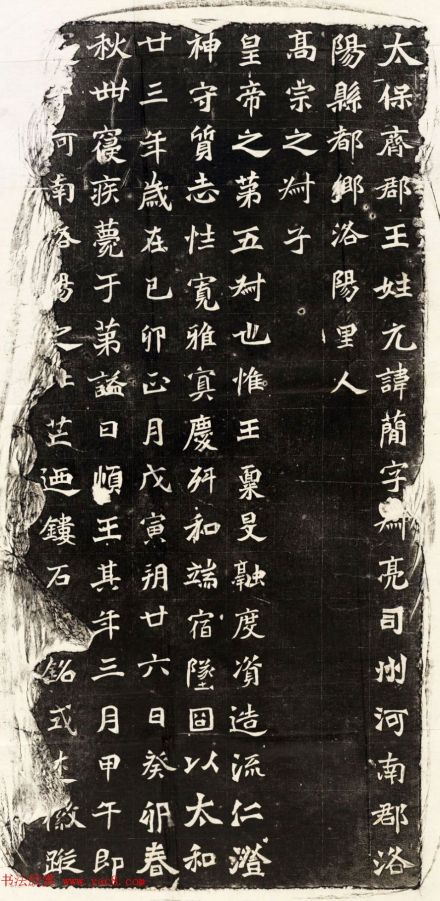 太保齊郡王姓元諱蕑字叔亮司州河南郡洛
陽縣都鄉洛陽里人
高宗之叔子
皇帝之第五叔也惟王稟旻融度資造流仁澄
神守質志性寬雅慶和端宿墜以太和
廿三年歲在己卯正月戊寅朔廿六日癸卯春
秋卌寑疾薨于第謚曰順王其年三月甲午即
河南洛陽之北芒迺鏤石銘式述徽蹤
书法欣赏 www.yac8.com